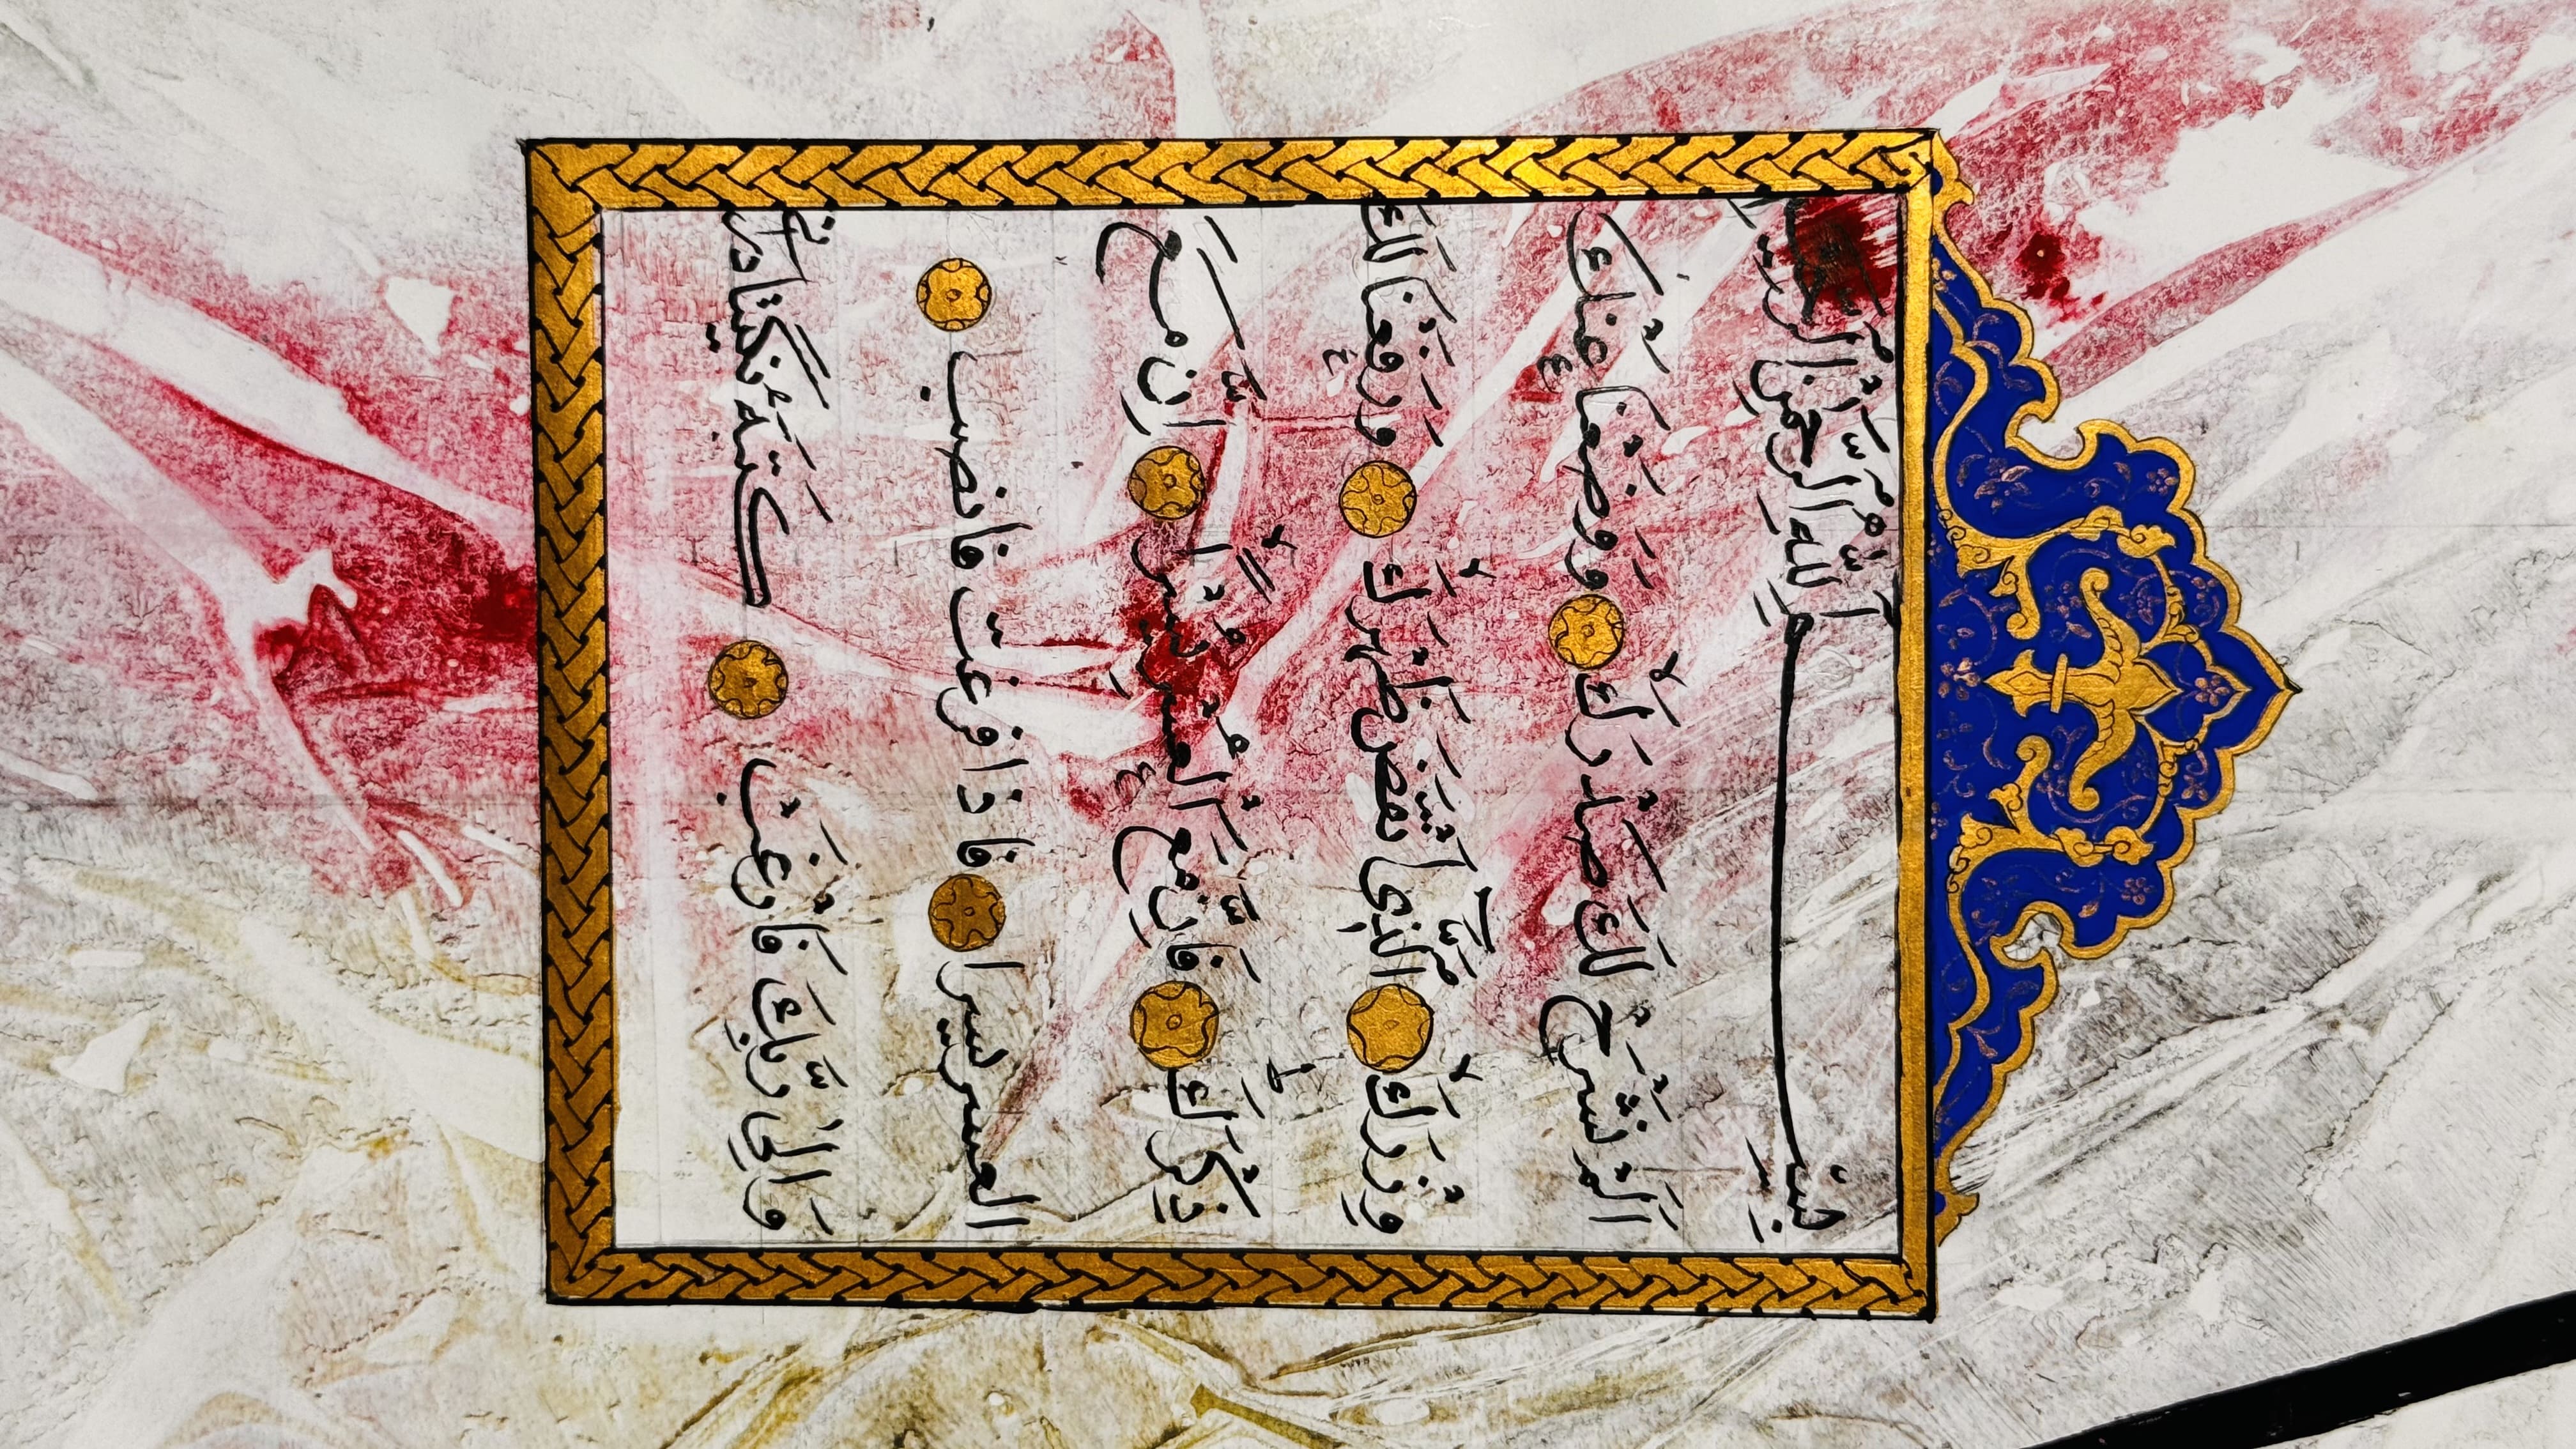 بِسْمِ اللّٰهِ الرَّحْمٰنِ الرَّحِيمِ
اَلَمْ نَشْرَحْ لَكَ صَدْرَكَ وَوَضَعْنَا عَنْكَ
وِزْرَكَ الَّذِى اَنْقَضَ ظَهْرَكَ وَرَفَعْنَا لَكَ
ذِكْرَكَ فَاِنَّ مَعَ الْعُسْرِ يُسْرًا اِنَّ مَعَ
العسر يسرا فاذا فرغت فانصب
وَاِلٰى رَبِّكَ فَارْغَبْ كَتَبَهُ